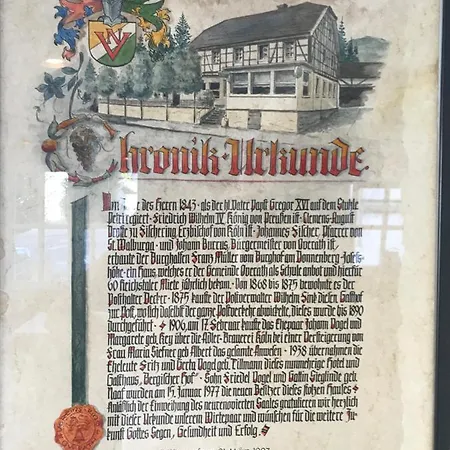 Chronik-Urkunde
Im Jahre des Herrn 1843 · als der hl. Vater Papst Gregor XVI auf dem Stuhle
Petri regiert · Friedrich Wilhelm IV König von Preußen ist · Clemens-August
Droste zu Vischering Erzbischof von Köln ist · Johannes Fischer Pfarrer von
St. Walburga · und Johann Burcus Bürgermeister von Overath ist,
erbaute der Burghalfen Franz Müller vom Burghof am Donnenberg-Josefs-
höhe · ein Haus, welches er der Gemeinde Overath als Schule anbot und hierfür
60 Reichstaler Miete jährlich bekam · Von 1868 bis 1875 bewohnte es der
Posthalter Becker · 1875 kaufte der Postverwalter Wilhelm Sink diesen Gasthof
zur Post, wo sich daselbst der ganze Postverkehr abwickelte, dieses wurde bis 1890
durchgeführt · 1906, am 17. Februar kaufte das Ehepaar Johann Vogel und
Margarete geb. Kerz über die Adler-Brauerei Köln bei einer Versteigerung von
Frau Maria Siefner geb Albert das gesamte Anwesen · 1938 übernahmen die
Eheleute Fritz und Berta Vogel geb. Tillmann dieses nunmehrige Hotel und
Gasthaus „Bergischer Hof“ · Sohn Friedel Vogel und Gattin Sieglinde geb.
Naaf wurden am 15. Januar 1977 die neuen Besitzer dieses stolzen Hauses
Anläßlich der Einweihung des neurenovierten Saales gratulieren wir herzlich
mit dieser Urkunde unserem Wirtepaar und wünschen für die weitere Zu-
kunft Gottes Segen, Gesundheit und Erfolg